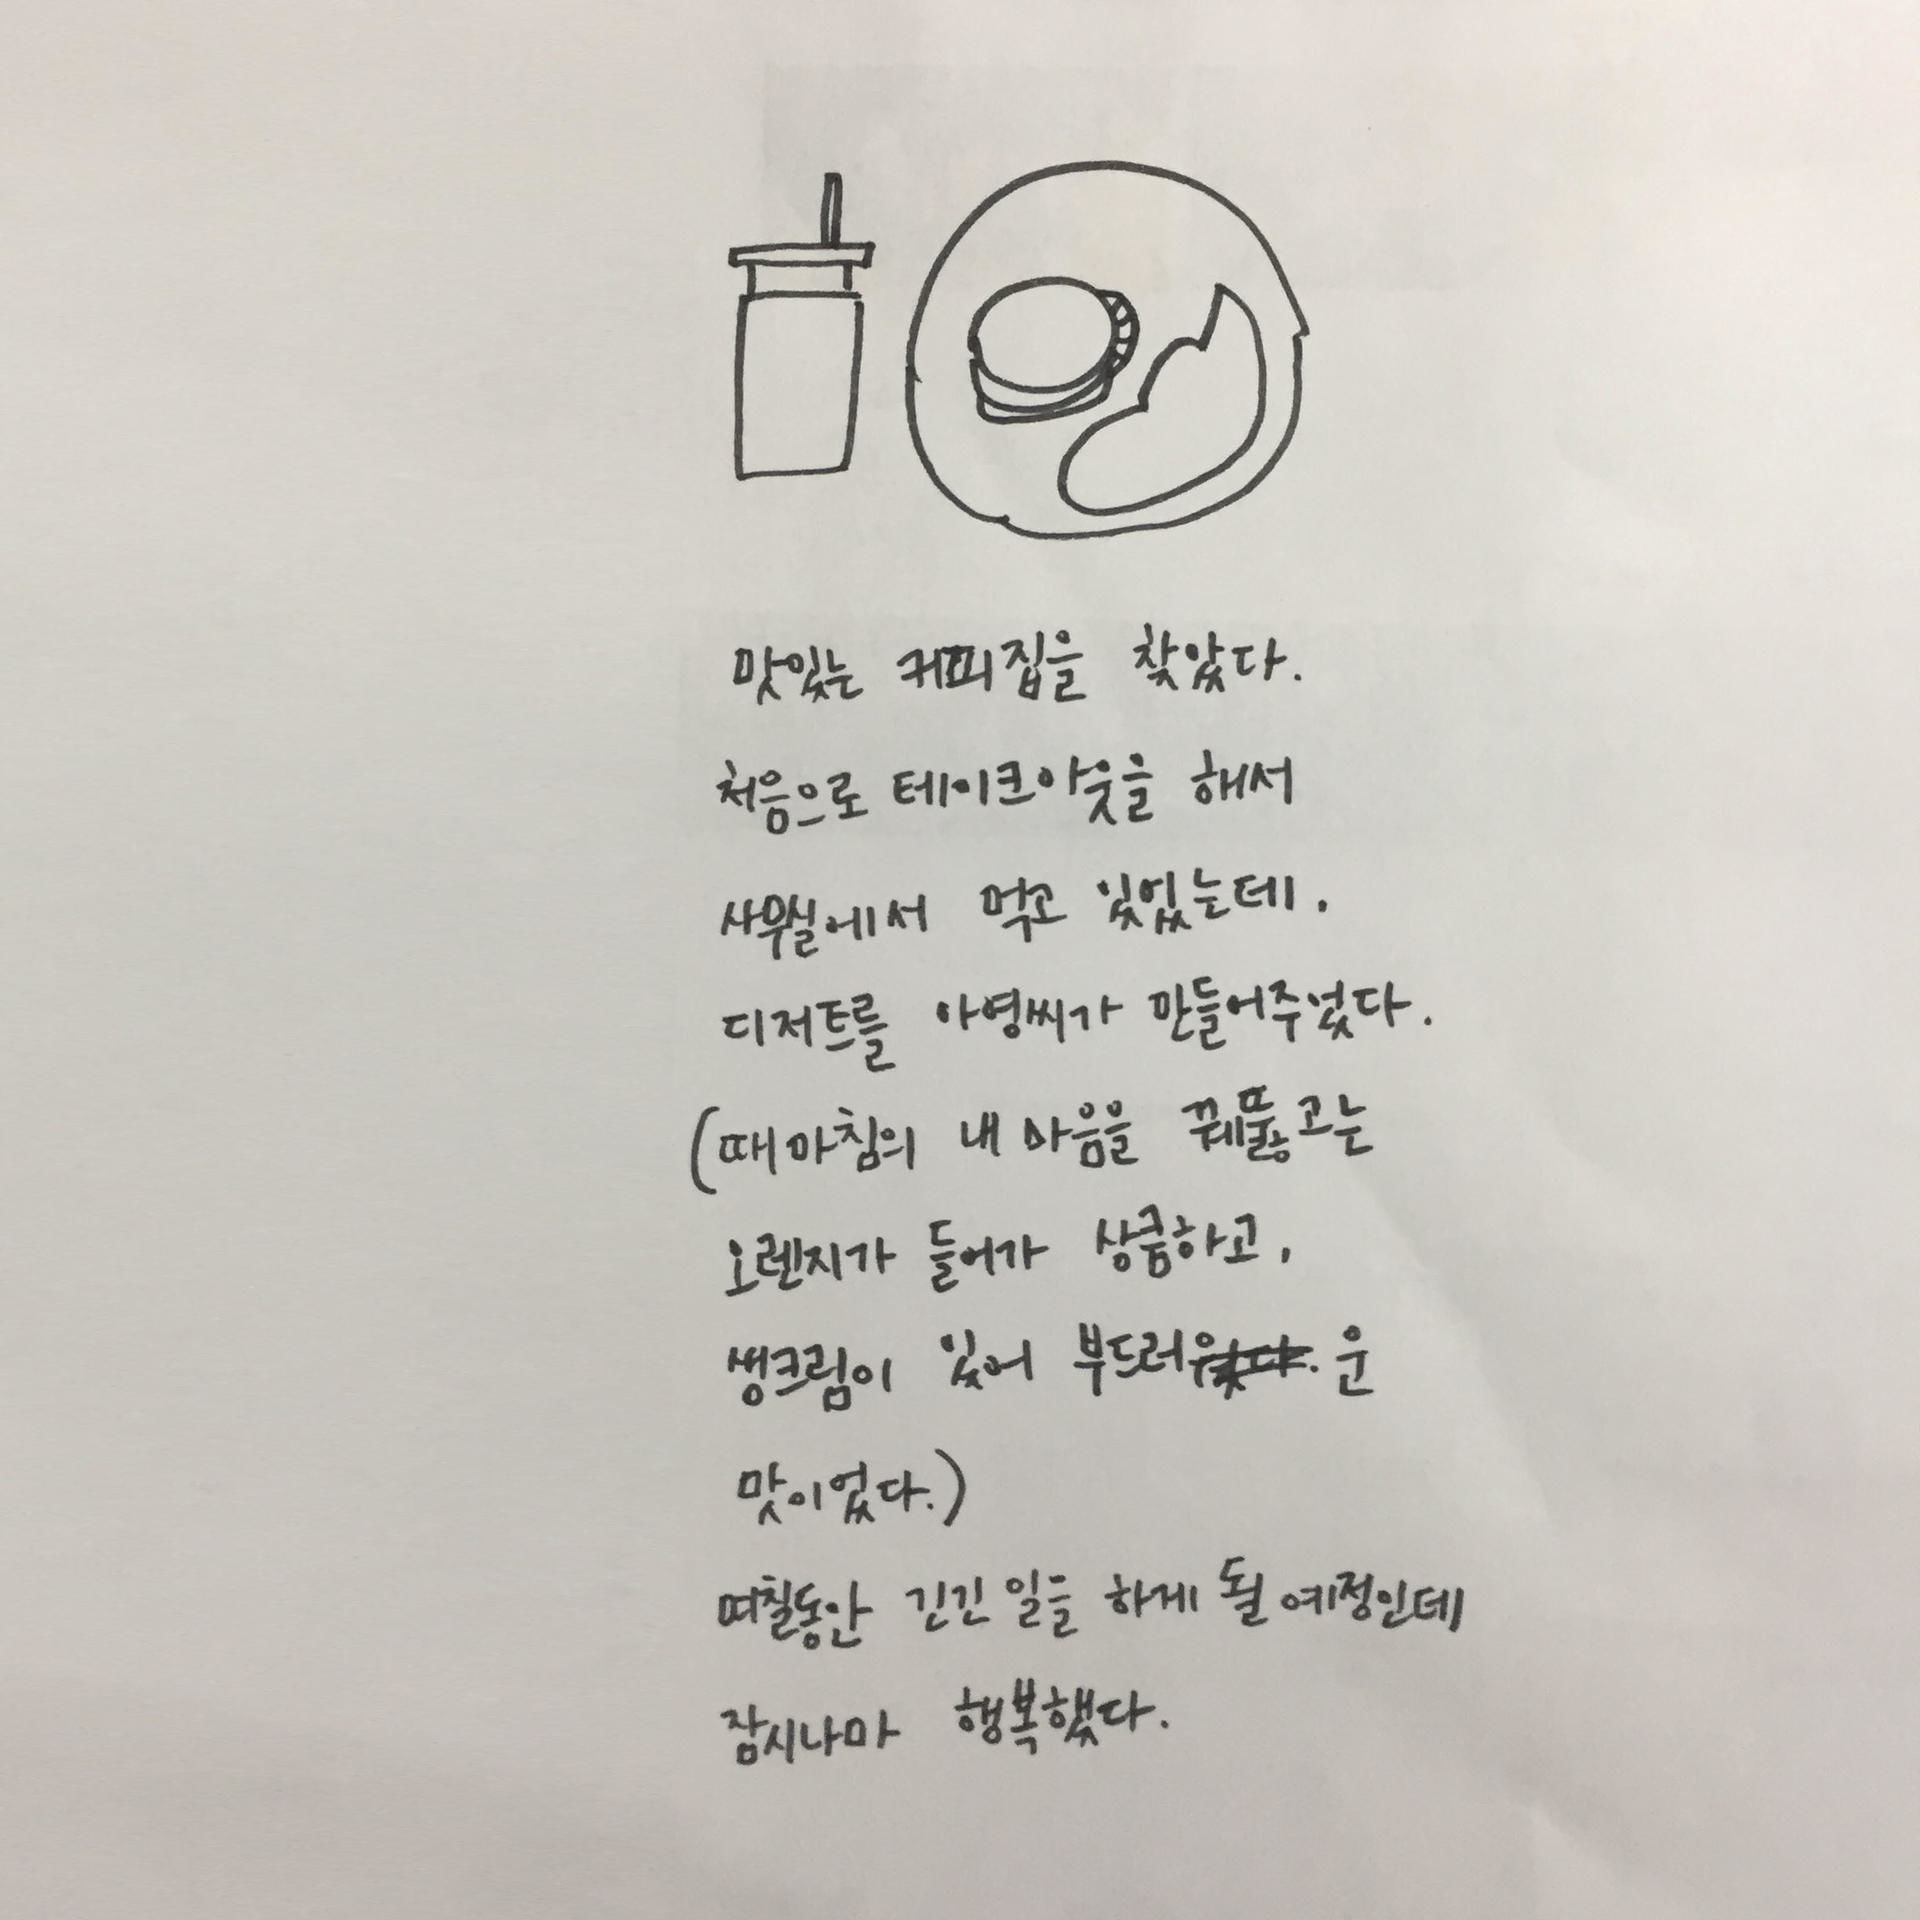 맛있는 커피집을 찾았다.
처음으로 테이크아웃을 해서
사무실에서 먹고 있었는데,
디저트를 아영씨가 만들어주었다.
(때마침의 내 마음을 꿰뚫고는
오렌지가 들어가 상큼하고,
생크림이 있어 부드러운
맛이었다.)
며칠동안 긴긴 일을 하게 될 예정인데
잠시나마 행복했다.